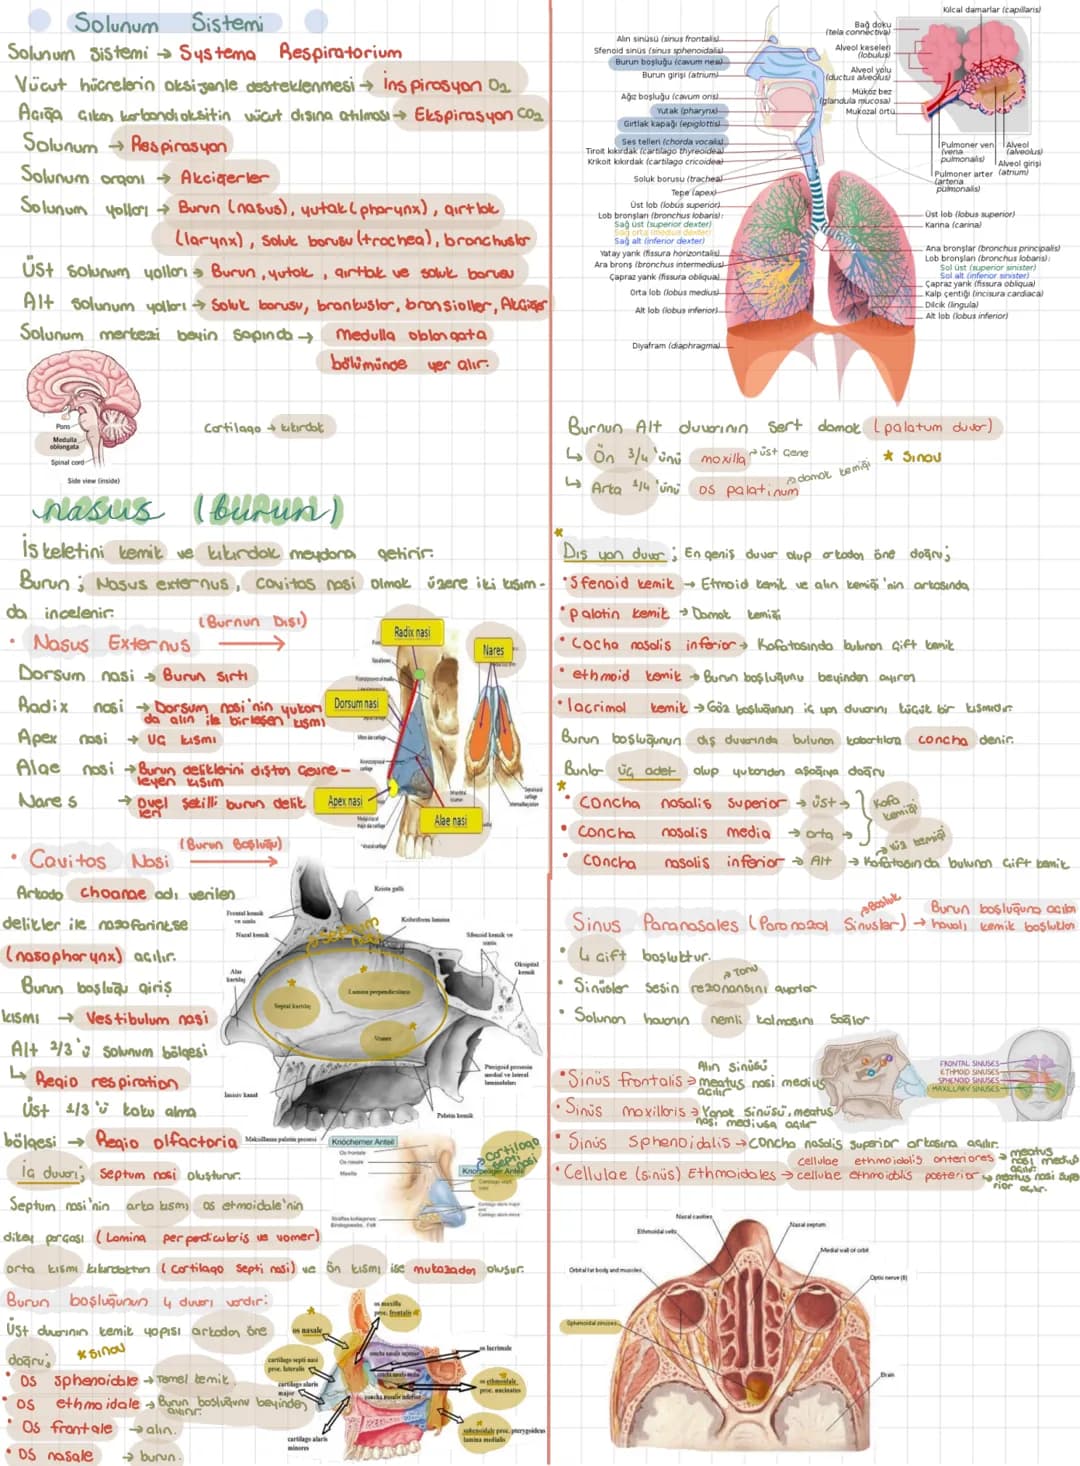 Solunum Sistemi
Solunum Sistemi → Systema Respiratorium
Vücut hücrelerin oksijenle desteklenmesi → İnspirasyon O2
Açığa çıkan karbondioksitin vücut dışına atılması → Ekspirasyon CO2
Solunum → Respirasyon
Solunum organı → Akciğerler
Solunum yolları → Burun (nasus), yutak (pharynx), gırtlak
(larynx), Soluk borusu (trachea), bronchuslar
Üst solunum yolları → Burun, yutak, gırtlak ve soluk borusu
Alt solunum yolları → Soluk borusu, bronkuslar, bronsioller, Akciğer
Solunum merkezi beyin sapında → medulla oblongata
bölümünde yer alır.
Pons
Medulla
oblongata
Spinal cord
Side view (inside)
Cartilago → kıkırdak
nasus (burun)
İskeletini kemik ve kıkırdak meydana getirir.
Burun ; Nasus externus, cavitas nasi olmak üzere iki kısım-
da incelenir.
(Burnun Dışı)
• Nasus Externus →
Dorsum nasi → Burun sırtı
Radix nasi → Dorsum nasi'nin yukarı
da alın ile birleşen kısmı
Apex nasi → uç kısmı
Alae nasi → Burun deliklerini dıştan çevre-
leyen kısım
Nares → Oval şekilli burun delik
leri
Radix nasi
Nares
Dorsum nasi
Apex nasi
Alae nasi
(Burun Boşluğu)
• Cavitas Nasi →
Arkada choanae adı verilen
delikler ile nasofarinkse
(nasopharynx) açılır.
Burun boşluğu giriş
kısmı → Vestibulum nasi
Alt 2/3'ü solunum bölgesi
↳ Regio respiration
Üst 1/3'ü koku alma
bölgesi → Regio olfactoria
iç duvarı; Septum nasi oluşturur.
Septum nasi'nin arka kısmı os etmoidale'nin
dikey parçası (Lamina perpendicularis ve vomer)
orta kısmı kıkırdaktan (cartilago septi nasi) ve ön kısmı ise mukozadan oluşur.
Krista galli
Frontal kemik
ve sinüs
Kribriform lamina
Nazal kemik
Sfenoid kemik ve
sinüs
Oksipital
kemik
Alar
kartilaj
Septal kartilaj
Lamina perpendicularis
Vomer
Pterigoid prosesin
medial ve lateral
laminaları
İnsisiv kanal
Palatin kemik
Maksillanın palatin prosesi
Knöcherner Anteil
Os frontale
Os nasale
Maxilla
Cartilago
septi
nasi
Burun boşluğunun 4 duvarı vardır:
Üst duvarının kemik yapısı arkadan öne
doğru; *Sınav
• OS sphenoidale → Temel kemik
• OS ethmoidale → Burun boşluğunu beyinden
ayırır.
• OS frontale → alın.
• OS nasale → burun.
os maxilla
proc. frontalis
os nasale
os lacrimale
cartilago septi nasi
proc. lateralis
cartilago alaris
major
concha nasalis superior
concha nasalis media
concha nasalis inferior
os ethmoidale
proc. uncinatus
sphenoidale proc. pterygoideus
lamina medialis
cartilago alaris
minores
Alın sinüsü (sinus frontalis)
Sfenoid sinüs (sinus sphenoidalis)
Burun boşluğu (cavum nesi)
Burun girişi (atrium)
Ağız boşluğu (cavum oris)
Yutak (pharynx)
Gırtlak kapağı (epiglottis)
Ses telleri (chorda vocalis)
Tiroit kıkırdak (cartilago thyreoidea)
Krikoit kıkırdak (cartilago cricoidea)
Soluk borusu (trachea)
Tepe (apex)
Üst lob (lobus superior)
Lob bronşları (bronchus lobaris):
Sağ üst (superior dexter)
Sağ orta (medius dexter)
Sağ alt (inferior dexter)
Yatay yarık (fissura horizontalis)
Ara bronş (bronchus intermedius)
Çapraz yarık (fissura obliqua)
Orta lob (lobus medius)
Alt lob (lobus inferior)
Diyafram (diaphragma)
Kılcal damarlar (capillaris)
Bağ doku
(tela connectiva)
Alveol keseleri
(lobulus)
Alveol yolu
(ductus alveolus)
Müköz bez
(glandula mucosa)
Mukozal örtü
Pulmoner ven
(vena
pulmonalis)
Alveol
(alveolus)
Alveol girişi
(atrium)
Pulmoner arter
(arteria
pulmonalis)
Üst lob (lobus superior)
Karina (carina)
Ana bronşlar (bronchus principalis)
Lob bronşları (bronchus lobaris):
Sol üst (superior sinister)
Sol alt (inferior sinister)
Çapraz yarık (fissura obliqua)
Kalp çentiği (incisura cardiaca)
Dilcik (lingula)
Alt lob (lobus inferior)
Burnun Alt duvarının Sert damak (palatum duvar)
↳ Ön 3/4'ünü maxilla → üst çene * Sınav
↳ Arka 1/4'ünü os palatinum → damak kemiği
* Dış yan duvar ; En geniş duvar olup arkadan öne doğru;
• Sfenoid kemik → Etmoid kemik ve alın kemiği'nin arkasında
• palatin kemik → Damak kemiği
• Cocha nasalis inferior → Kafatasında bulunan çift kemik
• ethmoid kemik → Burun boşluğunu beyinden ayıran
• lacrimal kemik → Göz boşluğunun iç yan duvarını küçük bir kısmıdır.
Burun boşluğunun dış duvarında bulunan kabartılara concha denir.
Bunlar üç adet olup yukarıdan aşağıya doğru
* • Concha nasalis superior → üst → Kafa kemiği
• Concha nasalis media → orta →
→ yüz kemiği
• Concha nasalis inferior → Alt → Kafatasında bulunan çift kemik
Sinus Paranasales (Paranazal Sinuslar) → Burun boşluğuna açılan
havalı kemik boşlukları
→ Boşluk
• 4 çift boşluktur.
• Sinüsler Sesin rezonansını ayarlar
→ Tonu
• Solunan havanın nemli kalmasını Sağlar
• Sinüs frontalis → Alın sinüsü
meatus nasi medius
açılır
• Sinüs maxillaris → Yanak Sinüsü, meatus
nasi mediusa açılır
• Sinüs Sphenoidalis → concha nasalis superior arkasına açılır.
• Cellulae (sinüs) Ethmoidales → cellulae ethmoidalis anteriores → meatus
nasi medius
açılır
cellulae ethmoidalis posterior → meatus nasi supe
rior açılır.
FRONTAL SINUSES
ETHMOID SINUSES
SPHENOID SINUSES
MAXILLARY SINUSES
Nasal cavities
Ethmoidal cells
Nasal septum
Medial wall of orbit
Orbital fat body and muscles
Optic nerve (II)
Sphenoidal sinuses
Brain